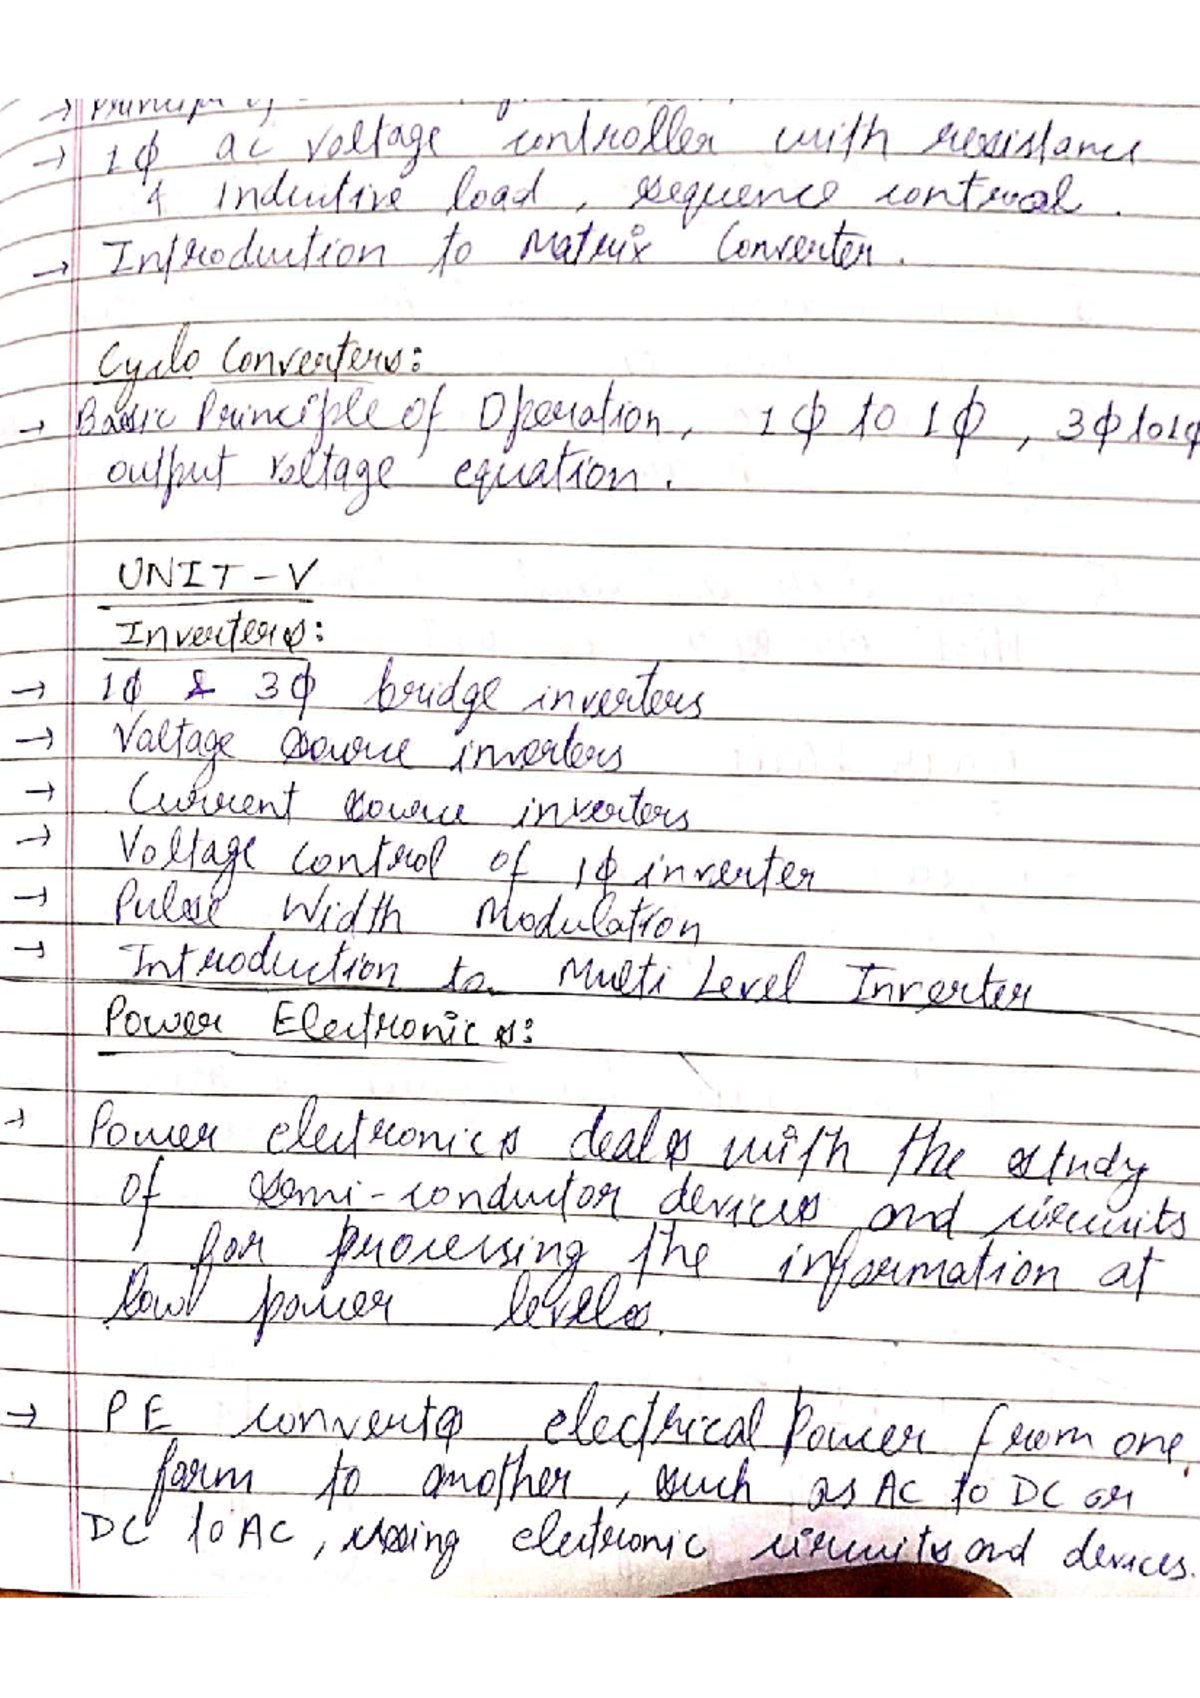 → Principle of
→ 1ϕ ac voltage controller with resistance
& Inductive load, sequence control.
→ Introduction to Matrix Converter.
Cyclo Converters:
→ Basic Principle of Operation, 1ϕ to 1ϕ, 3ϕ to 1ϕ
output voltage equation.
UNIT-V
Inverters:
→ 1ϕ & 3ϕ bridge inverters
→ Voltage source inverters
→ Current source inverters
→ Voltage control of 1ϕ inverter
→ Pulse Width Modulation
→ Introduction to Multi Level Inverter
Power Electronics:
→ Power electronics deals with the study
of semi-conductor devices and circuits
for processing the information at
low power levels.
→ PE converts electrical Power from one
form to another, such as AC to DC or
DC to AC, using electronic circuits and devices.